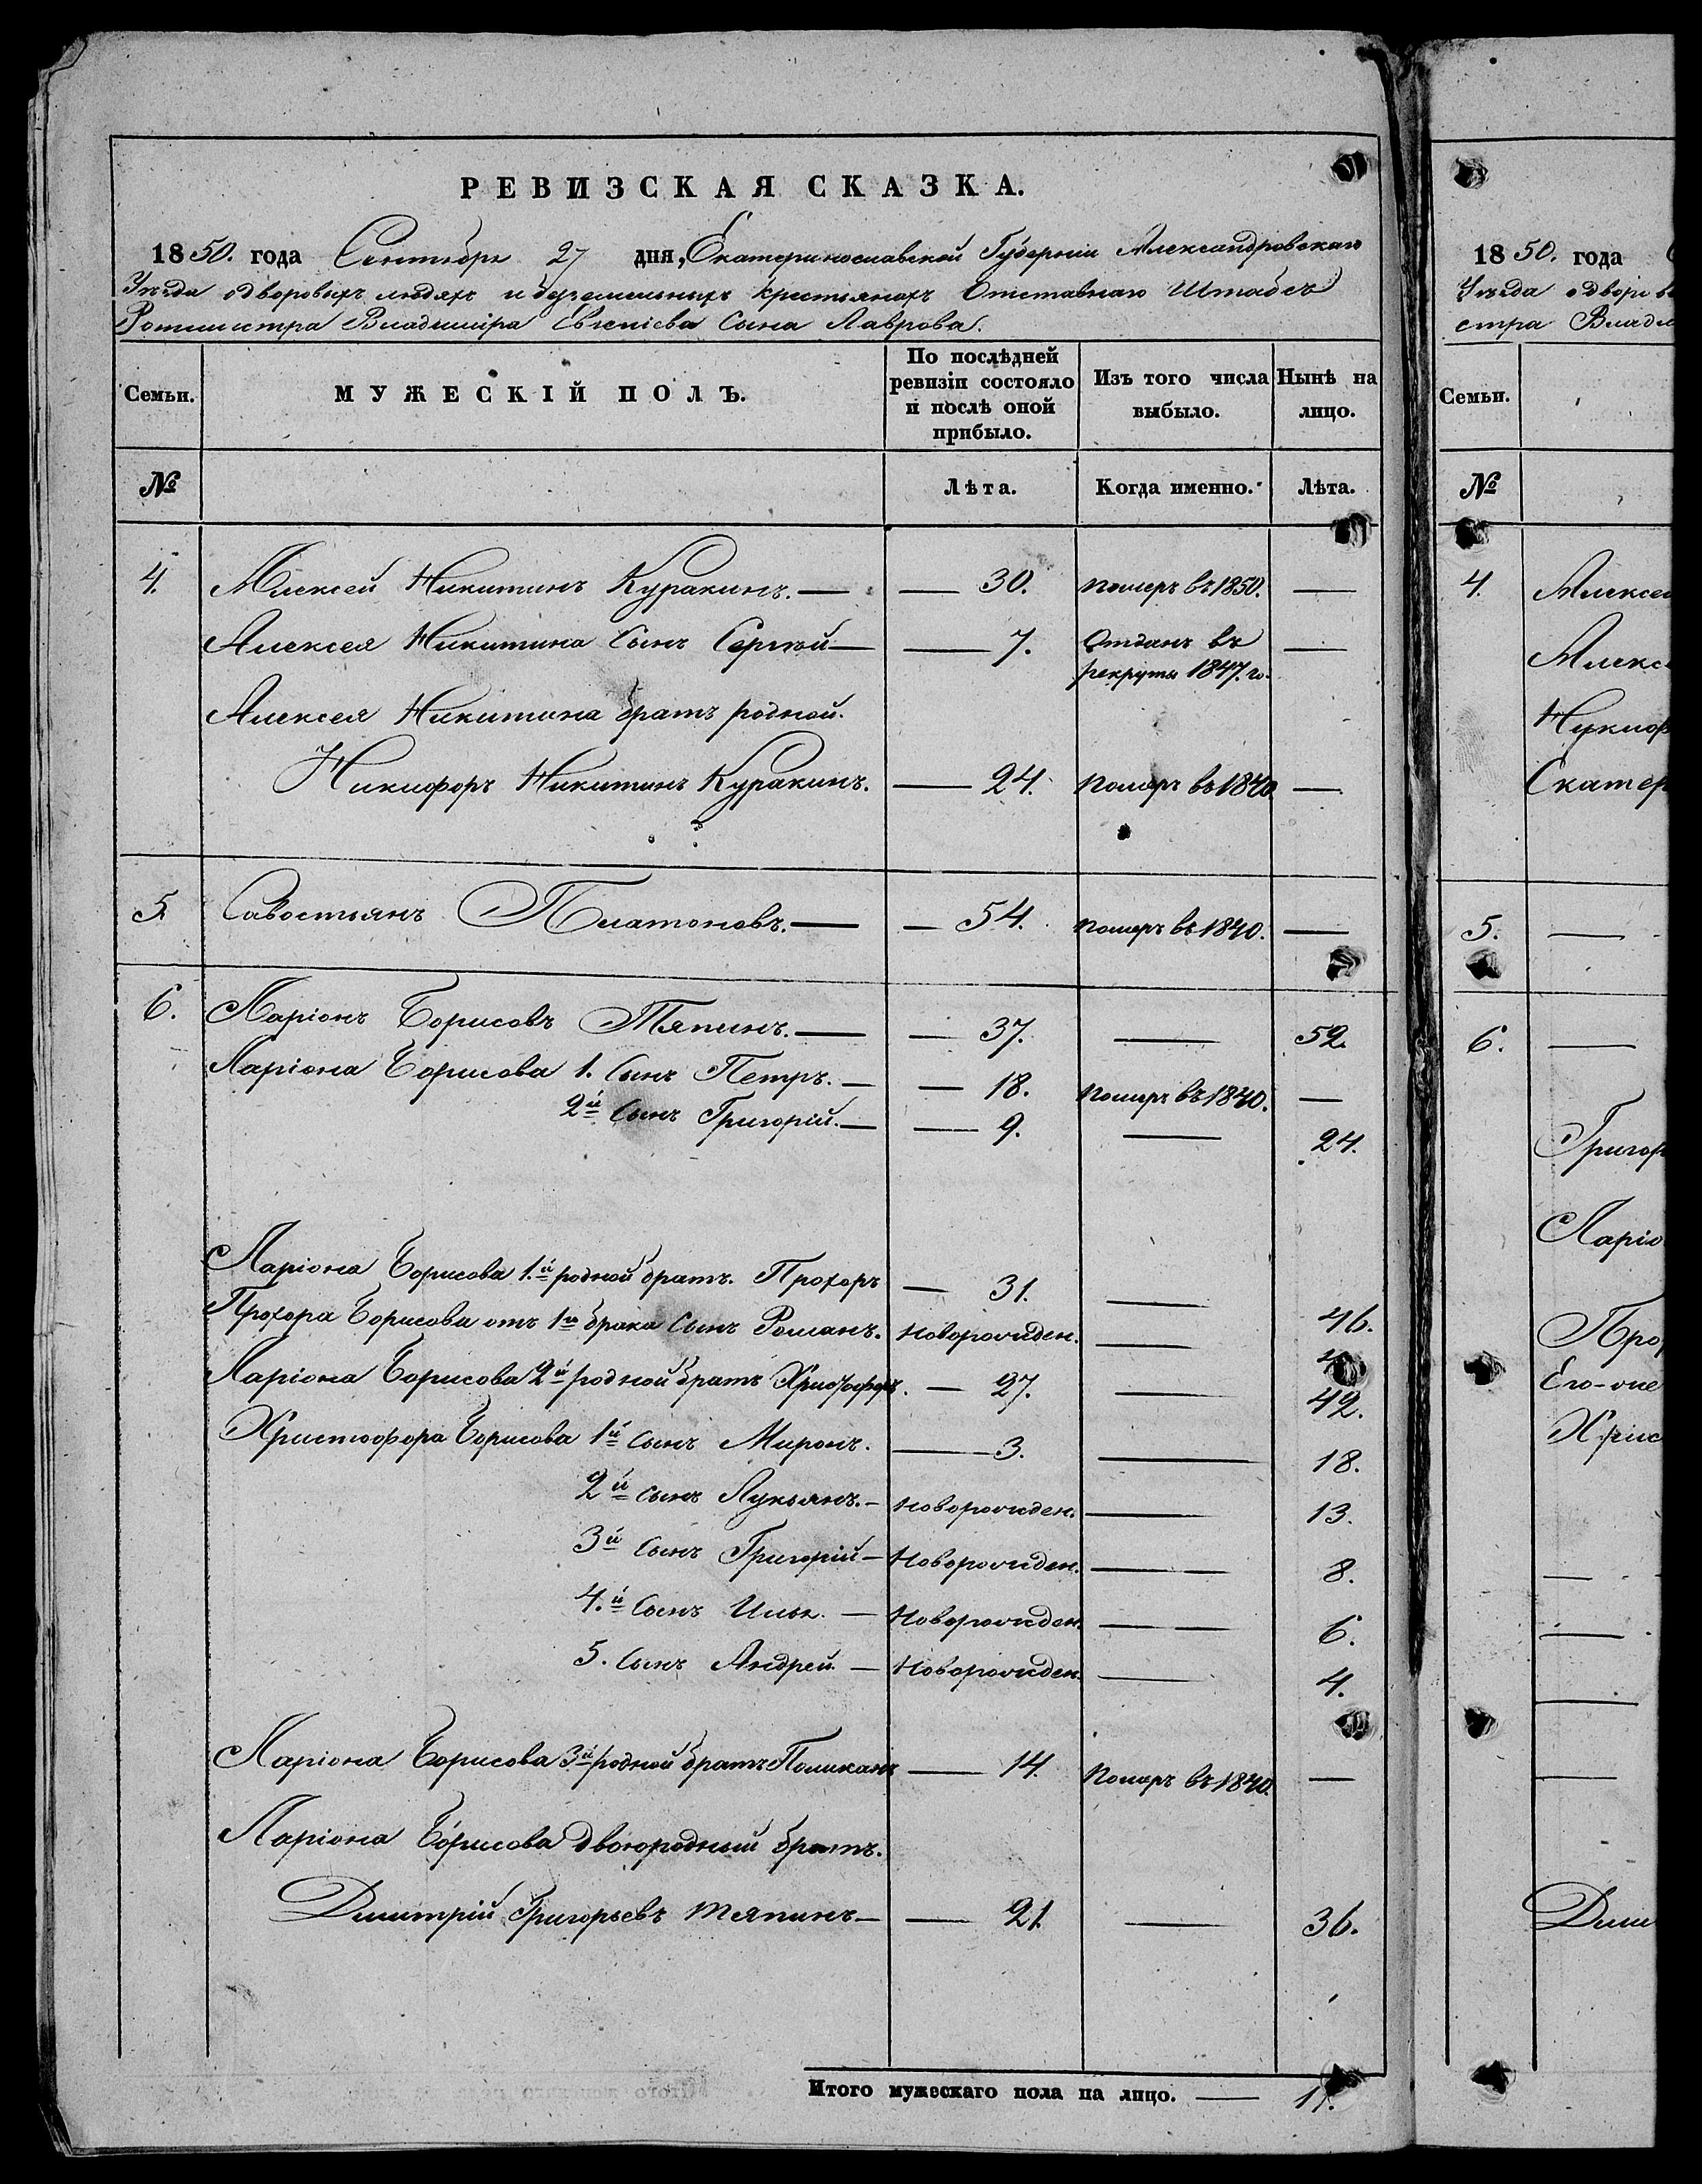 РЕВИЗСКАЯ СКАЗКА.
1850. года Сентября 27 дня, Екатеринославской Губерніи Александровскаго
Уѣзда о дворовыхъ людяхъ и безземельныхъ крестьянахъ Отставнаго Штабсъ
Ротмистра Владиміра Евгеніева Сына Лаврова.
Семьи.
МУЖЕСКІЙ ПОЛЪ.
По послѣдней ревизіи состояло и послѣ оной прибыло.
Изъ того числа выбыло.
Нынѣ на лицо.
№
Лѣта.
Когда именно.
Лѣта.
4. Алексей Никитинъ Куракинъ. — — 30. померъ въ 1850. —
Алексея Никитина Сынъ Сергѣй — — 7. Отданъ въ —
рекруты 1847. го.
Алексея Никитина братъ родной.
Никифоръ Никитинъ Куракинъ. — 24. померъ въ 1840 —
5 Савостьянъ Платоновъ. — — 54. померъ въ 1840. —
6. Ларіонъ Борисовъ Тяпинъ. — — 37. — 52.
Ларіона Борисова 1. Сынъ Петръ. — — 18. померъ въ 1840. —
2й Сынъ Григорій. — — 9. — 24.
Ларіона Борисова 1.й родной братъ. Прохоръ — 31. — 46.
Прохора Борисова отъ 1го брака Сынъ Романъ. Новорожден. —
Ларіона Борисова 2й родной братъ Христофоръ. — 27. — 42.
Христофора Борисова 1й Сынъ Миронъ. — 3. — 18.
2й сынъ Лукьянъ. — Новорожден. — 13.
3й Сынъ Григорій — Новорожден. — 8.
4.й Сынъ Илья. — Новорожден. — 6.
5. Сынъ Андрей. — Новорожден. — 4.
Ларіона Борисова 3й родной братъ Поликанъ — 14. померъ въ 1840. —
Ларіона Борисова двоюродный братъ.
Дмитрій Григорьевъ Тяпинъ — — 21. — 36.
Итого мужескаго пола на лицо. —
1850. года
Уѣзда о дворовы
стра Влади
Семьи.
№
4. Алексе
Алекс
Никиф
Екатер
5. —
6. —
Григор
Ларіо
Про
Его-же
Хрис
—
—
—
—
Дми